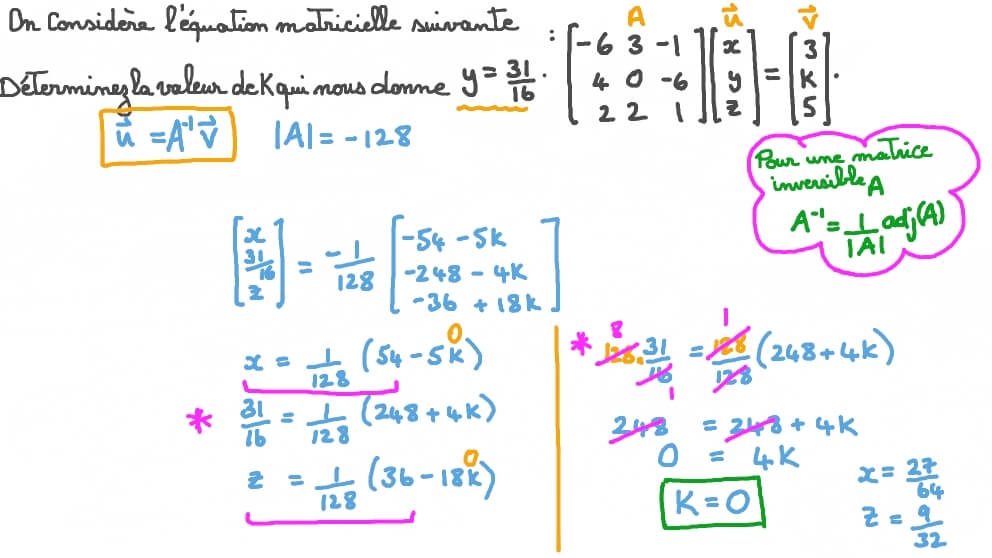 On Considère l'équation matricielle suivante : [-6 3 -1; 4 0 -6; 2 2 1] [x; y; z] = [3; K; 5].
A u⃗ v⃗
Déterminez la valeur de K qui nous donne y = 31/16 .
u⃗ = A⁻¹ v⃗ |A| = -128
Pour une matrice
inversible A
A⁻¹ = 1/|A| adj(A)
[x; 31/16; z] = -1/128 [-54 - 5K; -248 - 4K; -36 + 18K]
x = 1/128 (54 - 5K) 0
* 31/16 = 1/128 (248 + 4K)
z = 1/128 (36 - 18K) 0
* 8 128 . 31/16 1 = 1 128/128 (248 + 4K)
248 = 248 + 4K
0 = 4K
K = 0
x = 27/64
z = 9/32